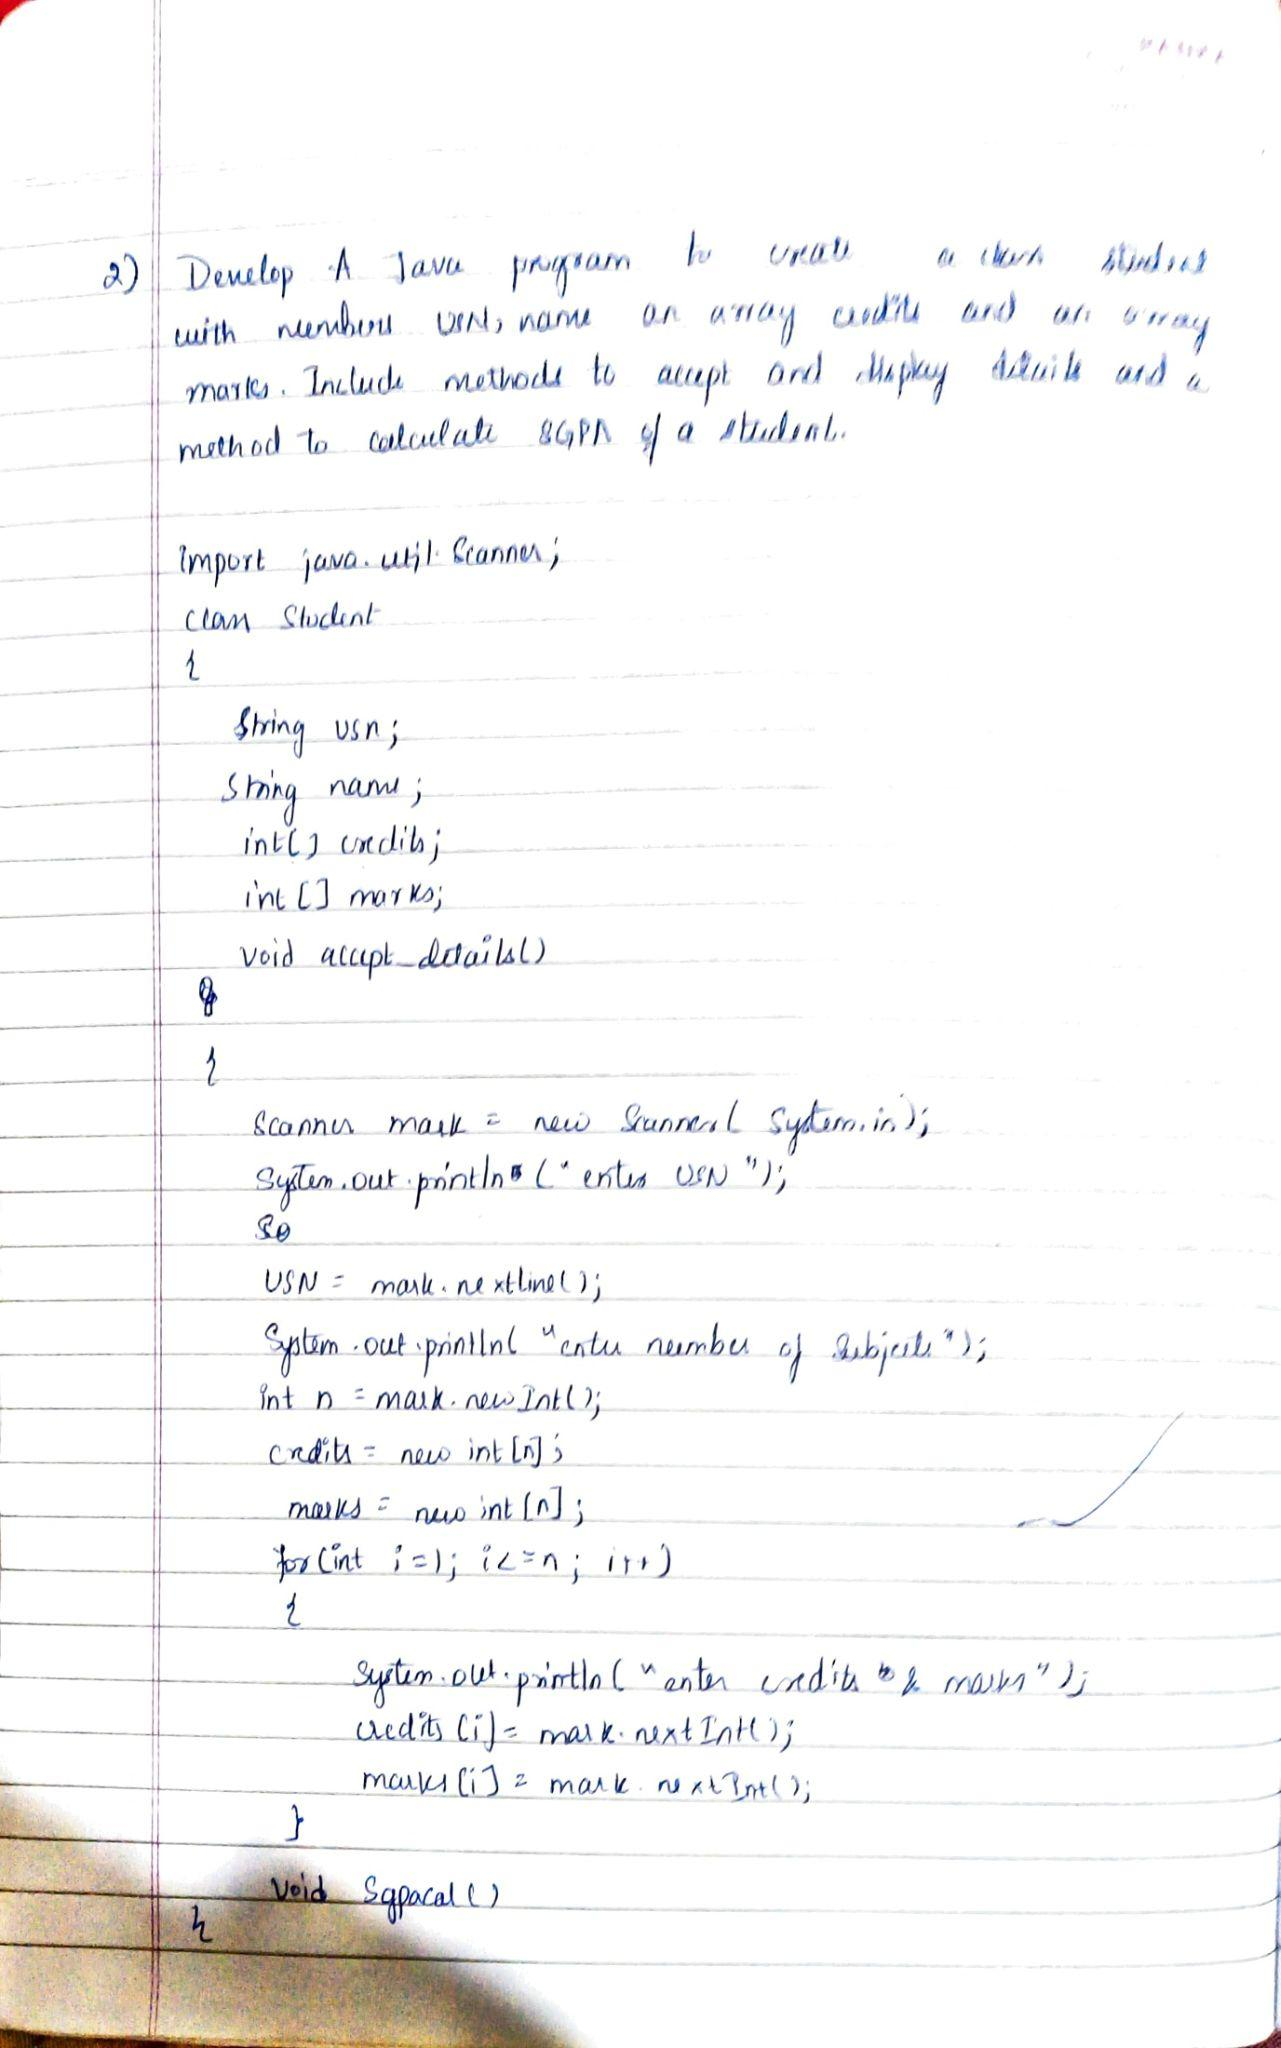 2) Develop A Java program to create a class student
with members USN, name an array credits and an array
marks. Include methods to accept and display details and a
method to calculate SGPA of a student.
import java.util.Scanner;
class Student
{
String usn;
String name;
int[] credits;
int[] marks;
void accept_details()
{
Scanner mark = new Scanner( System.in);
System.out.println ("enter USN");
USN = mark.nextline();
System.out.println( "enter number of Subjects");
int n = mark.newInt();
credits = new int[n];
marks = new int[n];
for(int i=1; i<=n; i++)
{
System.out.println("enter credits & marks");
credits[i]= mark.nextInt();
marks[i] = mark.nextInt();
}
void Sgpacal()
{